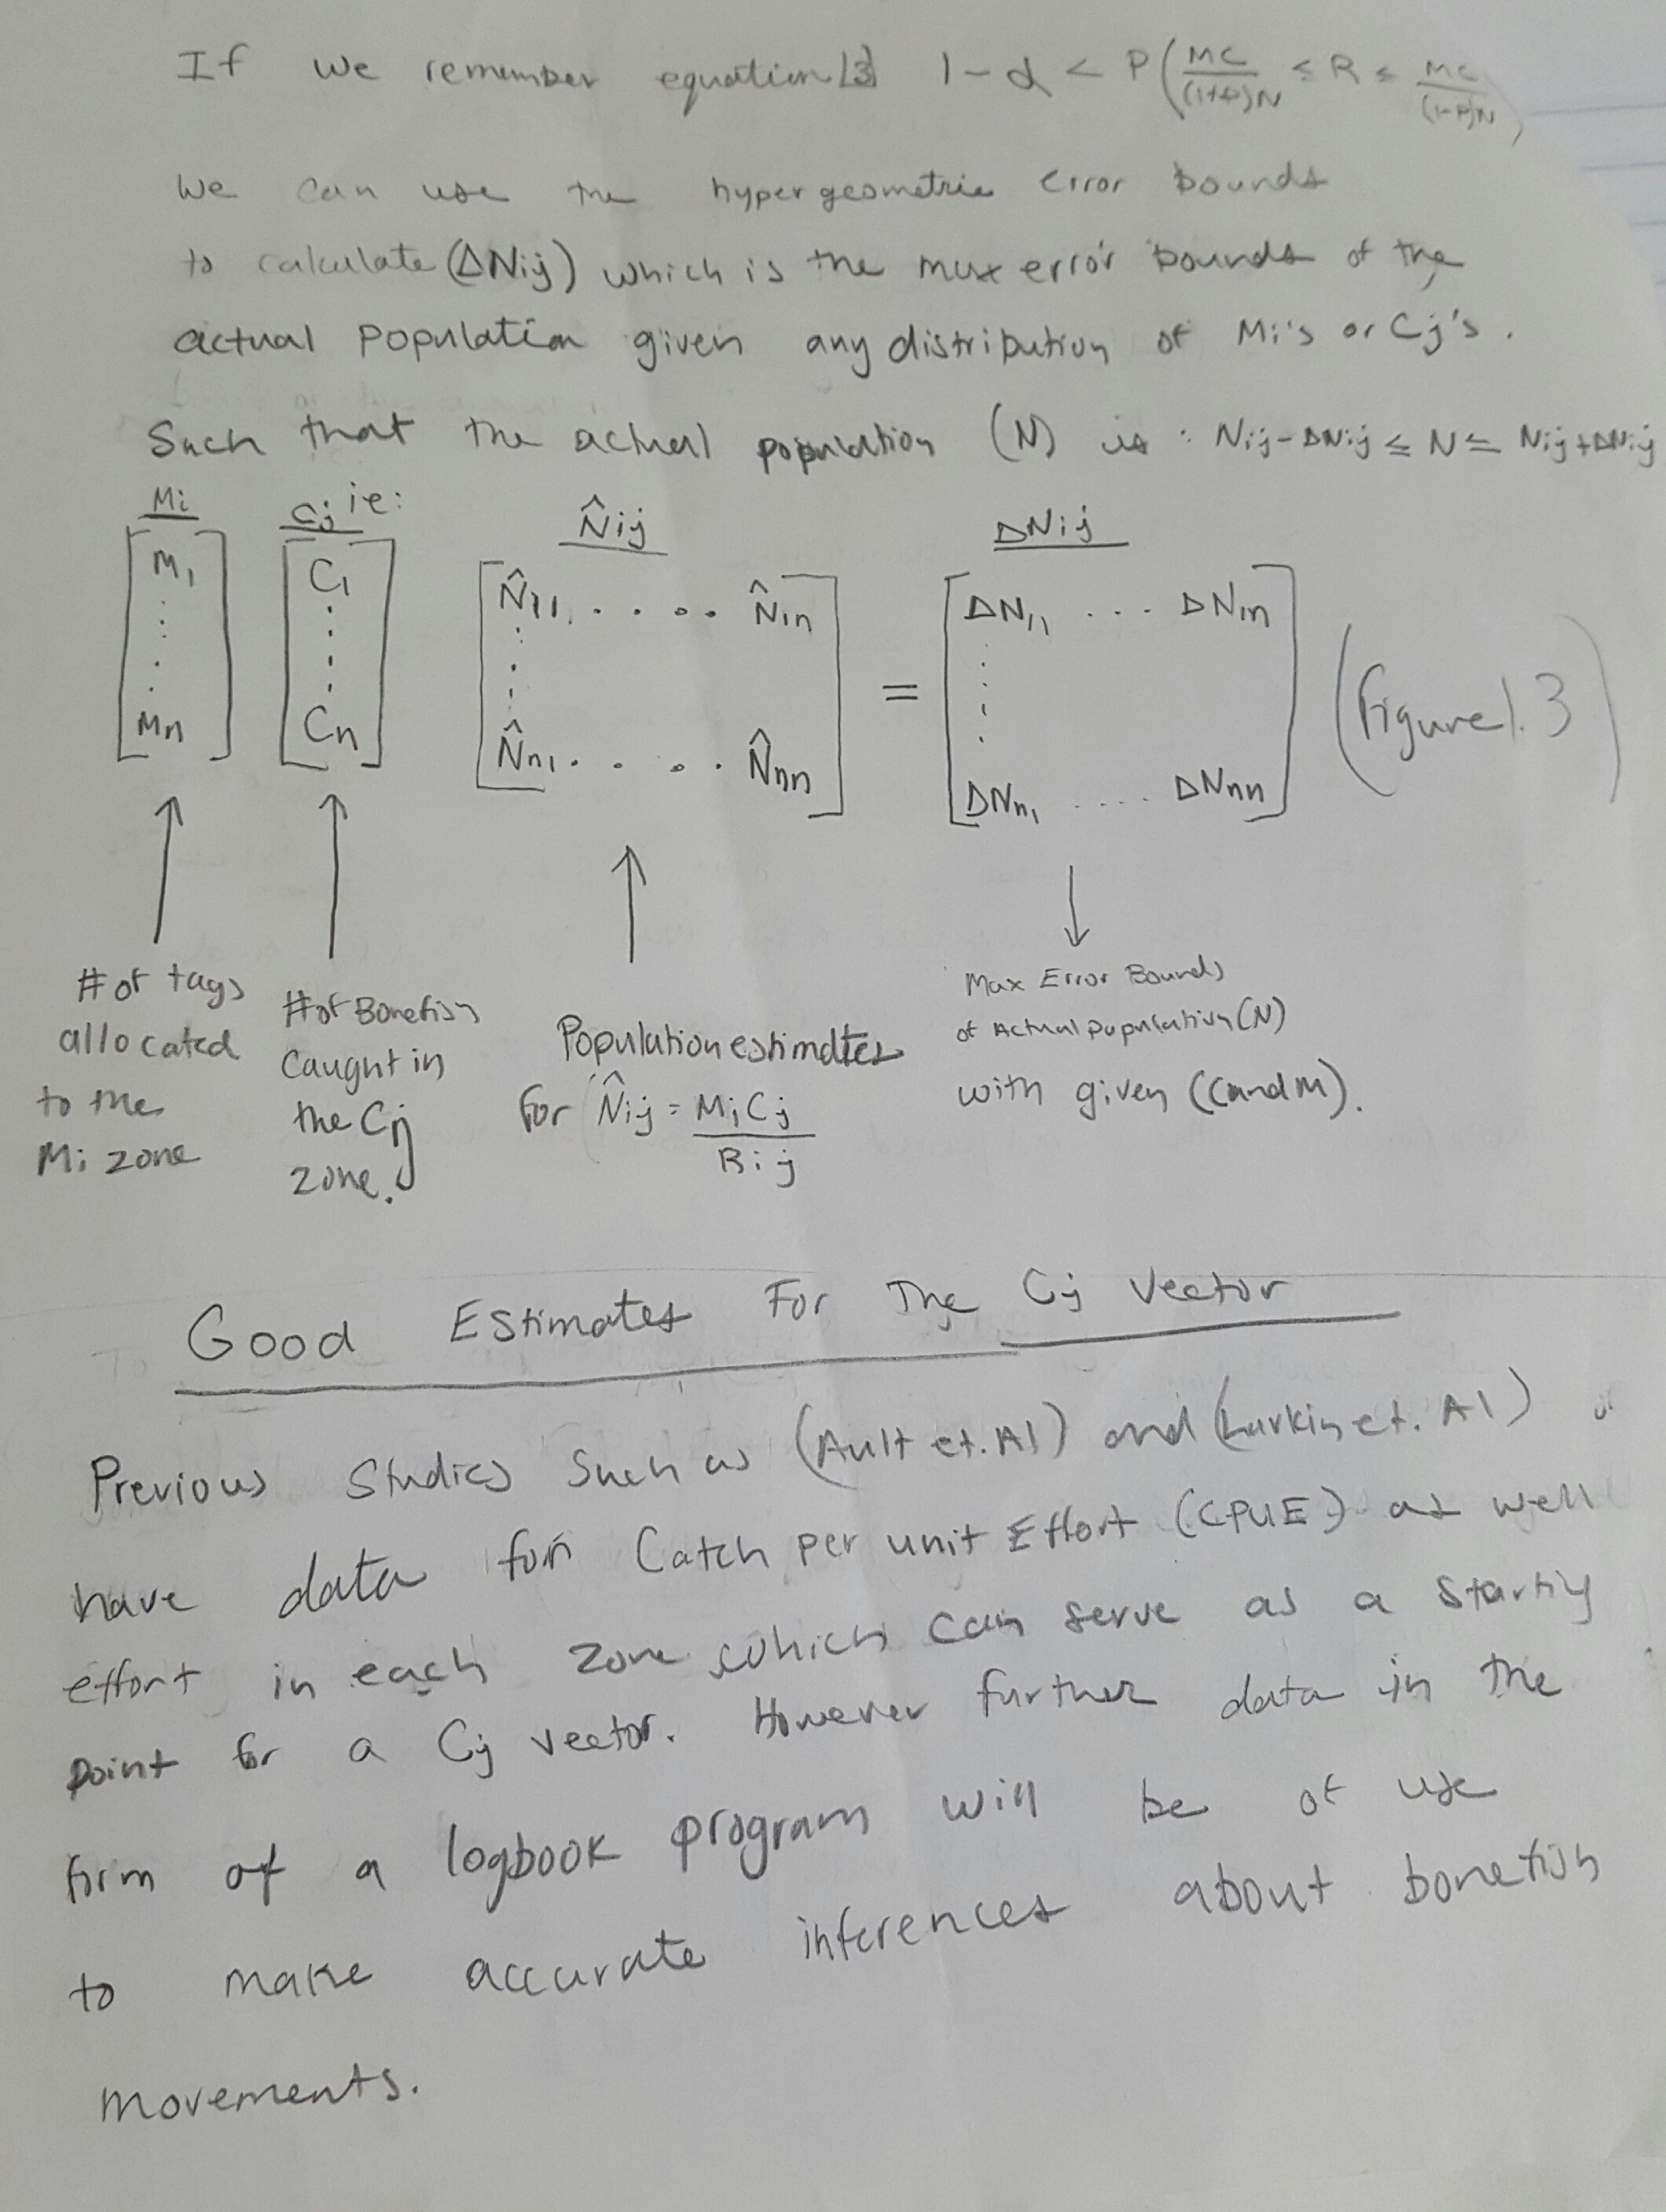 If we remember equation [3] 1-α < P(MC/(1+P)N ≤ R ≤ MC/(1-P)N)
We can use the hypergeometric error bounds
to calculate (ΔNij) which is the max error bounds of the
actual Population given any distribution of Mi's or Cj's.
Such that the actual population (N) is : Nij-ΔNij ≤ N ≤ Nij+ΔNij
ie:
Mi Cj N̂ij ΔNij
M1 C1 N̂11 . . . . . N̂1n ΔN11 . . . ΔN1n
= (Figure 1.3)
Mn Cn N̂n1 . . . . . N̂nn ΔNn1 . . . . ΔNnn
# of tags
allocated
to the
Mi zone
# of Bonefish
Caught in
the Cj
zone.
Population estimates
for N̂ij = MiCj/Rij
Max Error Bounds
of Actual population (N)
with given (C and M).
Good Estimates For The Cj Vector
Previous Studies Such as (Ault et. Al) and (Larkin et. Al)
have data for Catch per unit Effort (CPUE) as well
effort in each zone which can serve as a starting
point for a Cj vector. However further data in the
form of a logbook program will be of use
to make accurate inferences about bonefish
movements.